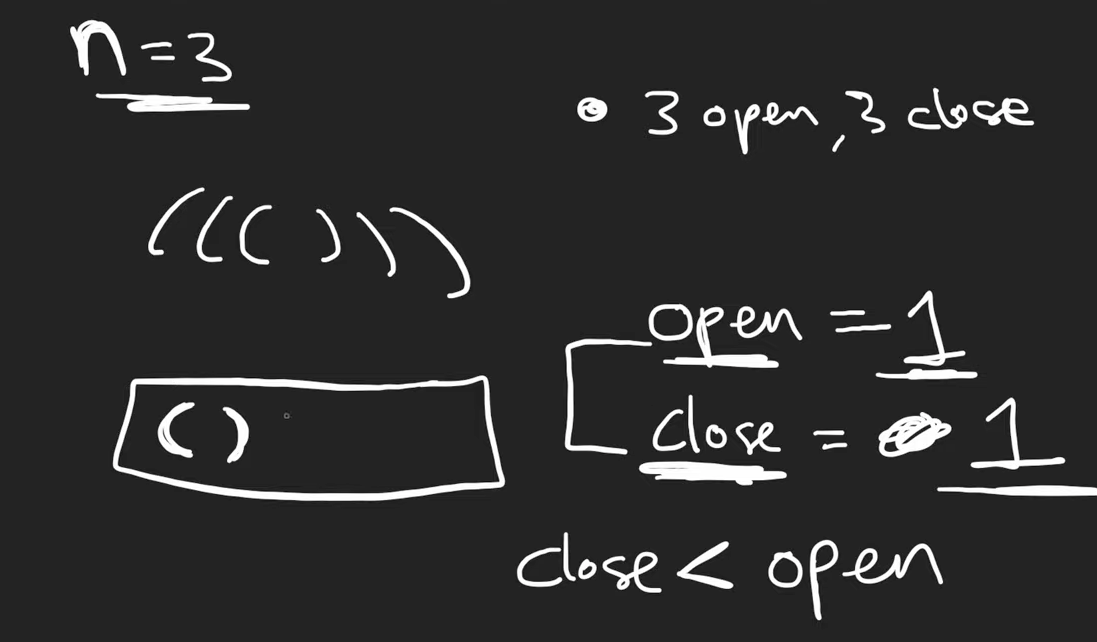 n = 3
• 3 open, 3 close
((()))
open = 1
()
close = 1
close < open